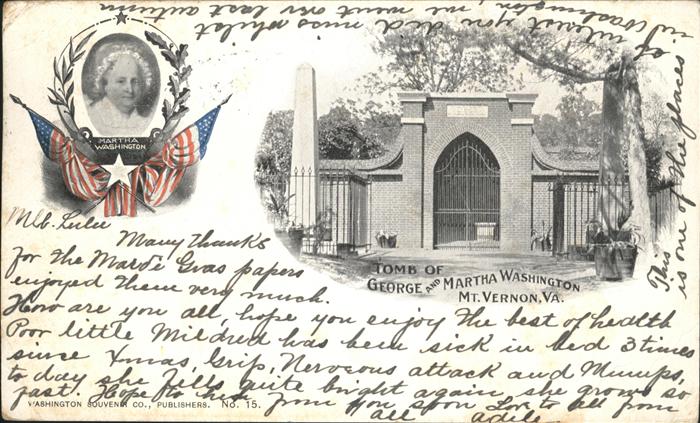 MARTHA
WASHINGTON
TOMB OF
GEORGE AND MARTHA WASHINGTON
MT. VERNON, VA.
Many thanks
for the Mardi Gras papers
enjoyed them very much.
How are you all, hope you enjoy the best of health
Poor little Mildred has been sick in bed 3 times
since Xmas, Grip, Nervous attack and Mumps,
to day she feels quite bright again, she grows so
fast. Hope to hear from you soon Love to all from
all Adele
This is one of the places
of interest you did miss whilst
in Washington, we went over last autumn
WASHINGTON SOUVENIR CO., PUBLISHERS. No. 15.